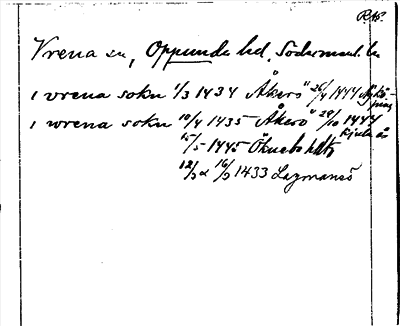 R.A.
Vrena sn, Oppunda hd, Södermanl. l.
i vrena sokn 1/3 1434 Åkerö" 26/4 1444 Nykö-
ping
i wrena sokn 10/4 1435 Åkerö" 29/10 1444
15/5 1445 Öknebo hd
12/3 16/3 1433 Lagmansö